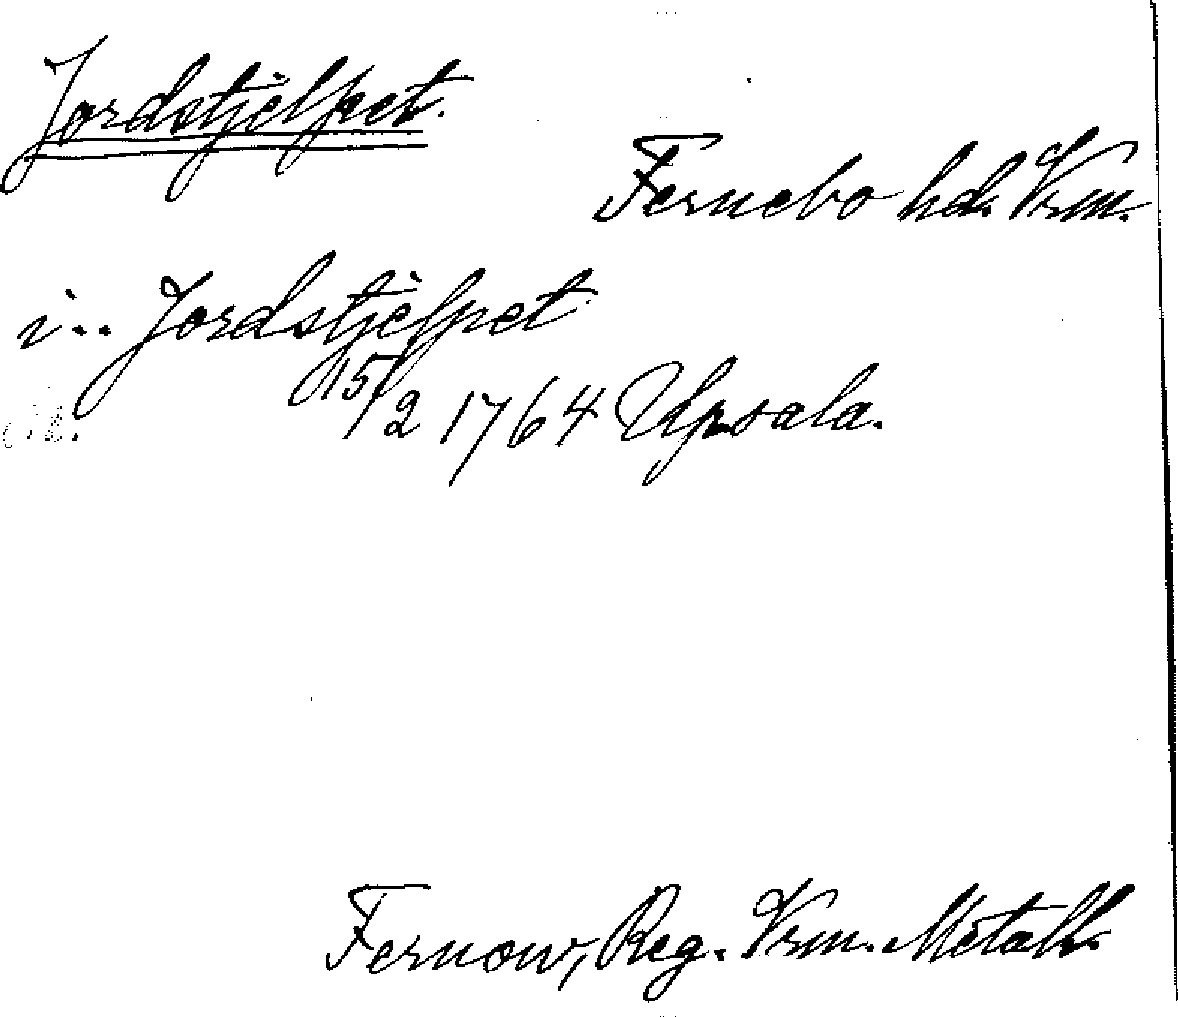 Jordstjelpet.
Fernebo hd. Vrm.
i.. Jordstjelpet
15/2 1764 Upsala.
Fernow, Reg. Vrm. Metallh.